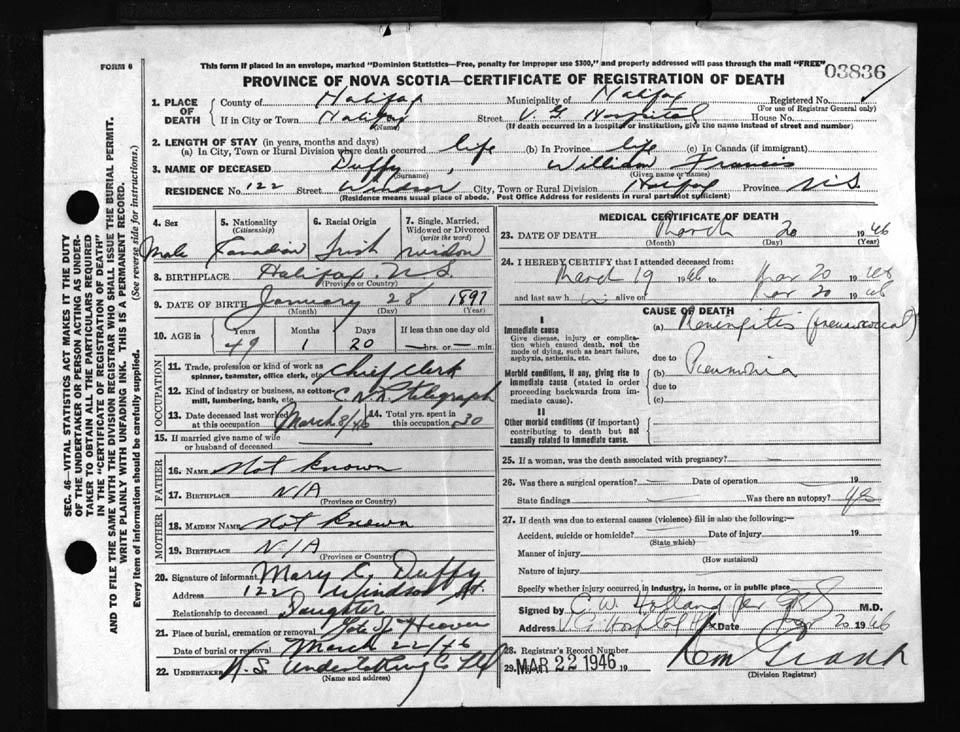 This form if placed in an envelope, marked "Dominion Statistics—Free, penalty for improper use $300," and property addressed will pass through the mail "FREE"
FORM 6
03836
PROVINCE OF NOVA SCOTIA—CERTIFICATE OF REGISTRATION OF DEATH
1. PLACE OF DEATH County of Halifax Municipality of Halifax Registered No.
(For use of Registrar General only)
If in City or Town Halifax Street V. G. Hospital House No.
(Name) (If death occurred in a hospital or institution, give the name instead of street and number)
2. LENGTH OF STAY (in years, months and days)
(a) In City, Town or Rural Division where death occurred life (b) In Province life (c) In Canada (if immigrant)
3. NAME OF DECEASED Duffy, William Francis
(Surname) (Given name or names)
RESIDENCE No. 122 Street Windsor City, Town or Rural Division Halifax Province N.S.
(Residence means usual place of abode. Post Office Address for residents in rural parts not sufficient)
4. Sex 5. Nationality (Citizenship) 6. Racial Origin 7. Single, Married, Widowed or Divorced (write the word)
Male Canadian Irish widow
8. BIRTHPLACE Halifax N.S.
(Province or Country)
9. DATE OF BIRTH January 28 1897
(Month) (Day) (Year)
10. AGE in Years Months Days If less than one day old
49 1 20 hrs. or min.
OCCUPATION
11. Trade, profession or kind of work as spinner, teamster, office clerk, etc. Chief Clerk
12. Kind of industry or business, as cotton-mill, lumbering, bank, etc. C N R Telegraph
13. Date deceased last worked at this occupation March 8/46 14. Total yrs. spent in this occupation 30
15. If married give name of wife or husband of deceased
FATHER
16. NAME Not Known
17. BIRTHPLACE N/A
(Province or Country)
MOTHER
18. MAIDEN NAME Not Known
19. BIRTHPLACE N/A
(Province or Country)
20. Signature of informant Mary C. Duffy
Address 122 Windsor St.
Relationship to deceased Daughter
21. Place of burial, cremation or removal Gate of Heaven
Date of burial or removal March 22/46
22. UNDERTAKER N.S. Undertaking Co Ltd
(Name and address)
MEDICAL CERTIFICATE OF DEATH
23. DATE OF DEATH March 20 1946
(Month) (Day) (Year)
24. I HEREBY CERTIFY that I attended deceased from:
March 19 1946 to Mar 20 1946
and last saw h im alive on Mar 20 1946
CAUSE OF DEATH
I
Immediate cause (a) Meningitis (pneumococcal)
Give disease, injury or complication which caused death, not the mode of dying, such as heart failure, asphyxia, asthenia, etc.
due to
Morbid conditions, if any, giving rise to immediate cause (stated in order proceeding backwards from immediate cause). (b) Pneumonia
due to
(c)
II
Other morbid conditions (if important) contributing to death but not causally related to immediate cause.
25. If a woman, was the death associated with pregnancy?
26. Was there a surgical operation? Date of operation 19
State findings Was there an autopsy? Yes
27. If death was due to external causes (violence) fill in also the following:—
Accident, suicide or homicide? Date of injury 19
(State which)
Manner of injury
(How sustained)
Nature of injury
Specify whether injury occurred in industry, in home, or in public place
Signed by C. W. Holland per M.D.
Address V. G. Hospital Hfx Date Mar 20 1946
28. Registrar's Record Number
29. MAR 22 1946 19
(Division Registrar)
SEC. 46—VITAL STATISTICS ACT MAKES IT THE DUTY
OF THE UNDERTAKER OR PERSON ACTING AS UNDER-
TAKER TO OBTAIN ALL THE PARTICULARS REQUIRED
IN THE "CERTIFICATE OF REGISTRATION OF DEATH"
AND TO FILE THE SAME WITH THE DIVISION REGISTRAR WHO SHALL ISSUE THE BURIAL PERMIT.
WRITE PLAINLY WITH UNFADING INK. THIS IS A PERMANENT RECORD.
Every item of information should be carefully supplied. (See reverse side for instructions.)